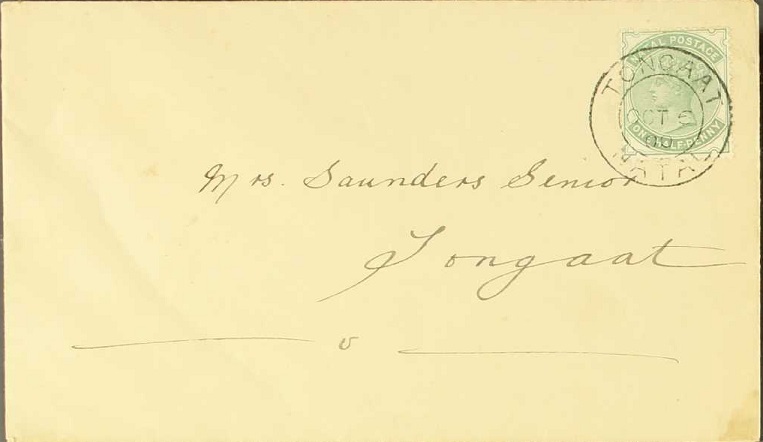 NATAL POSTAGE
TONGAAT
OCT 6
00
NATAL
ONE HALF-PENNY
Mrs. Saunders Senior
Tongaat